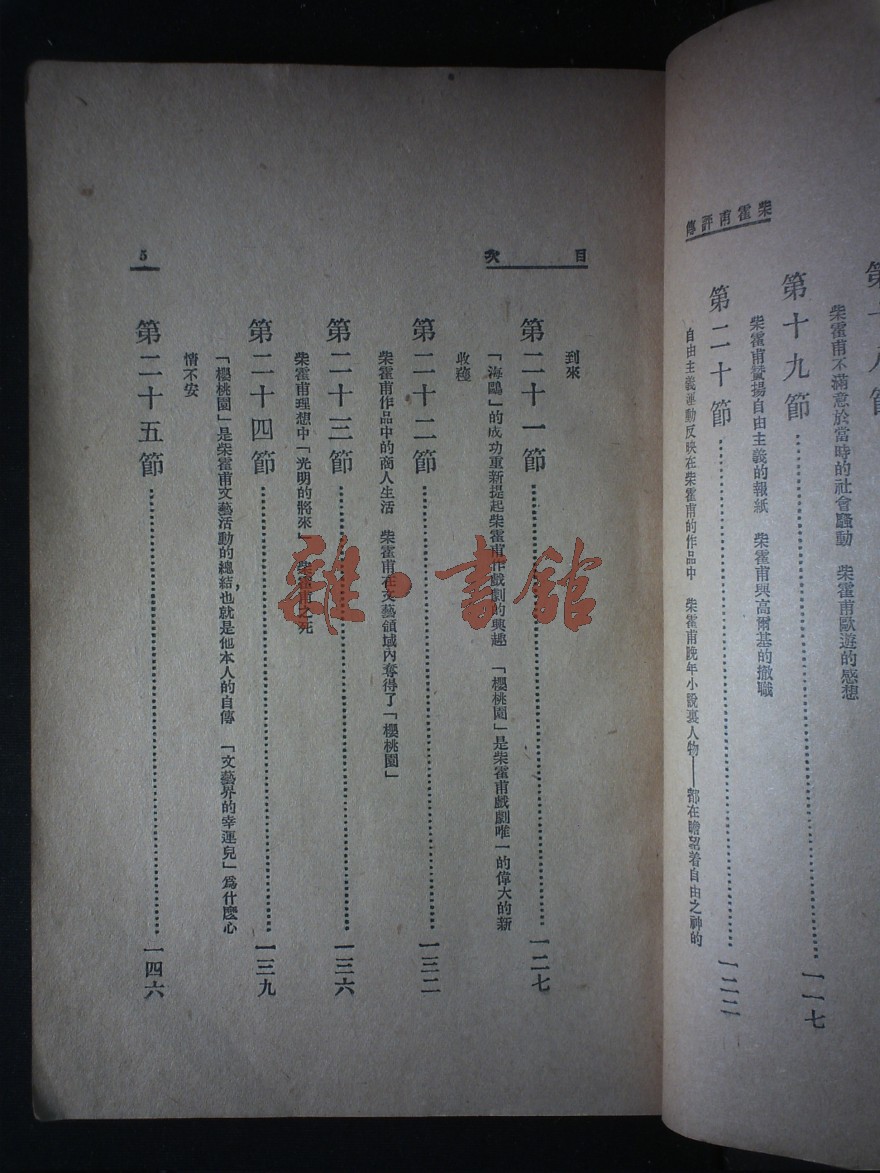 柴霍甫評傳
柴霍甫不滿意於當時的社會騷動　柴霍甫歐遊的感想
第十九節…………一一七
柴霍甫贊揚自由主義的報紙　柴霍甫與高爾基的撤職
第二十節…………一二二
自由主義運動反映在柴霍甫的作品中　柴霍甫晚年小說裏人物——都在瞻望着自由之神的
目次
到來
第二十一節…………一二七
「海鷗」的成功重新提起柴霍甫作戲劇的興趣　「櫻桃園」是柴霍甫戲劇唯一的偉大的新
收穫
第二十二節…………一三二
柴霍甫作品中的商人生活　柴霍甫在文藝領域內奪得了「櫻桃園」
第二十三節…………一三六
柴霍甫理想中「光明的將來」　柴霍甫之死
第二十四節…………一三九
「櫻桃園」是柴霍甫文藝活動的總結，也就是他本人的自傳　「文藝界的幸運兒」爲什麼心
情不安
第二十五節…………一四六
5
雜·書館